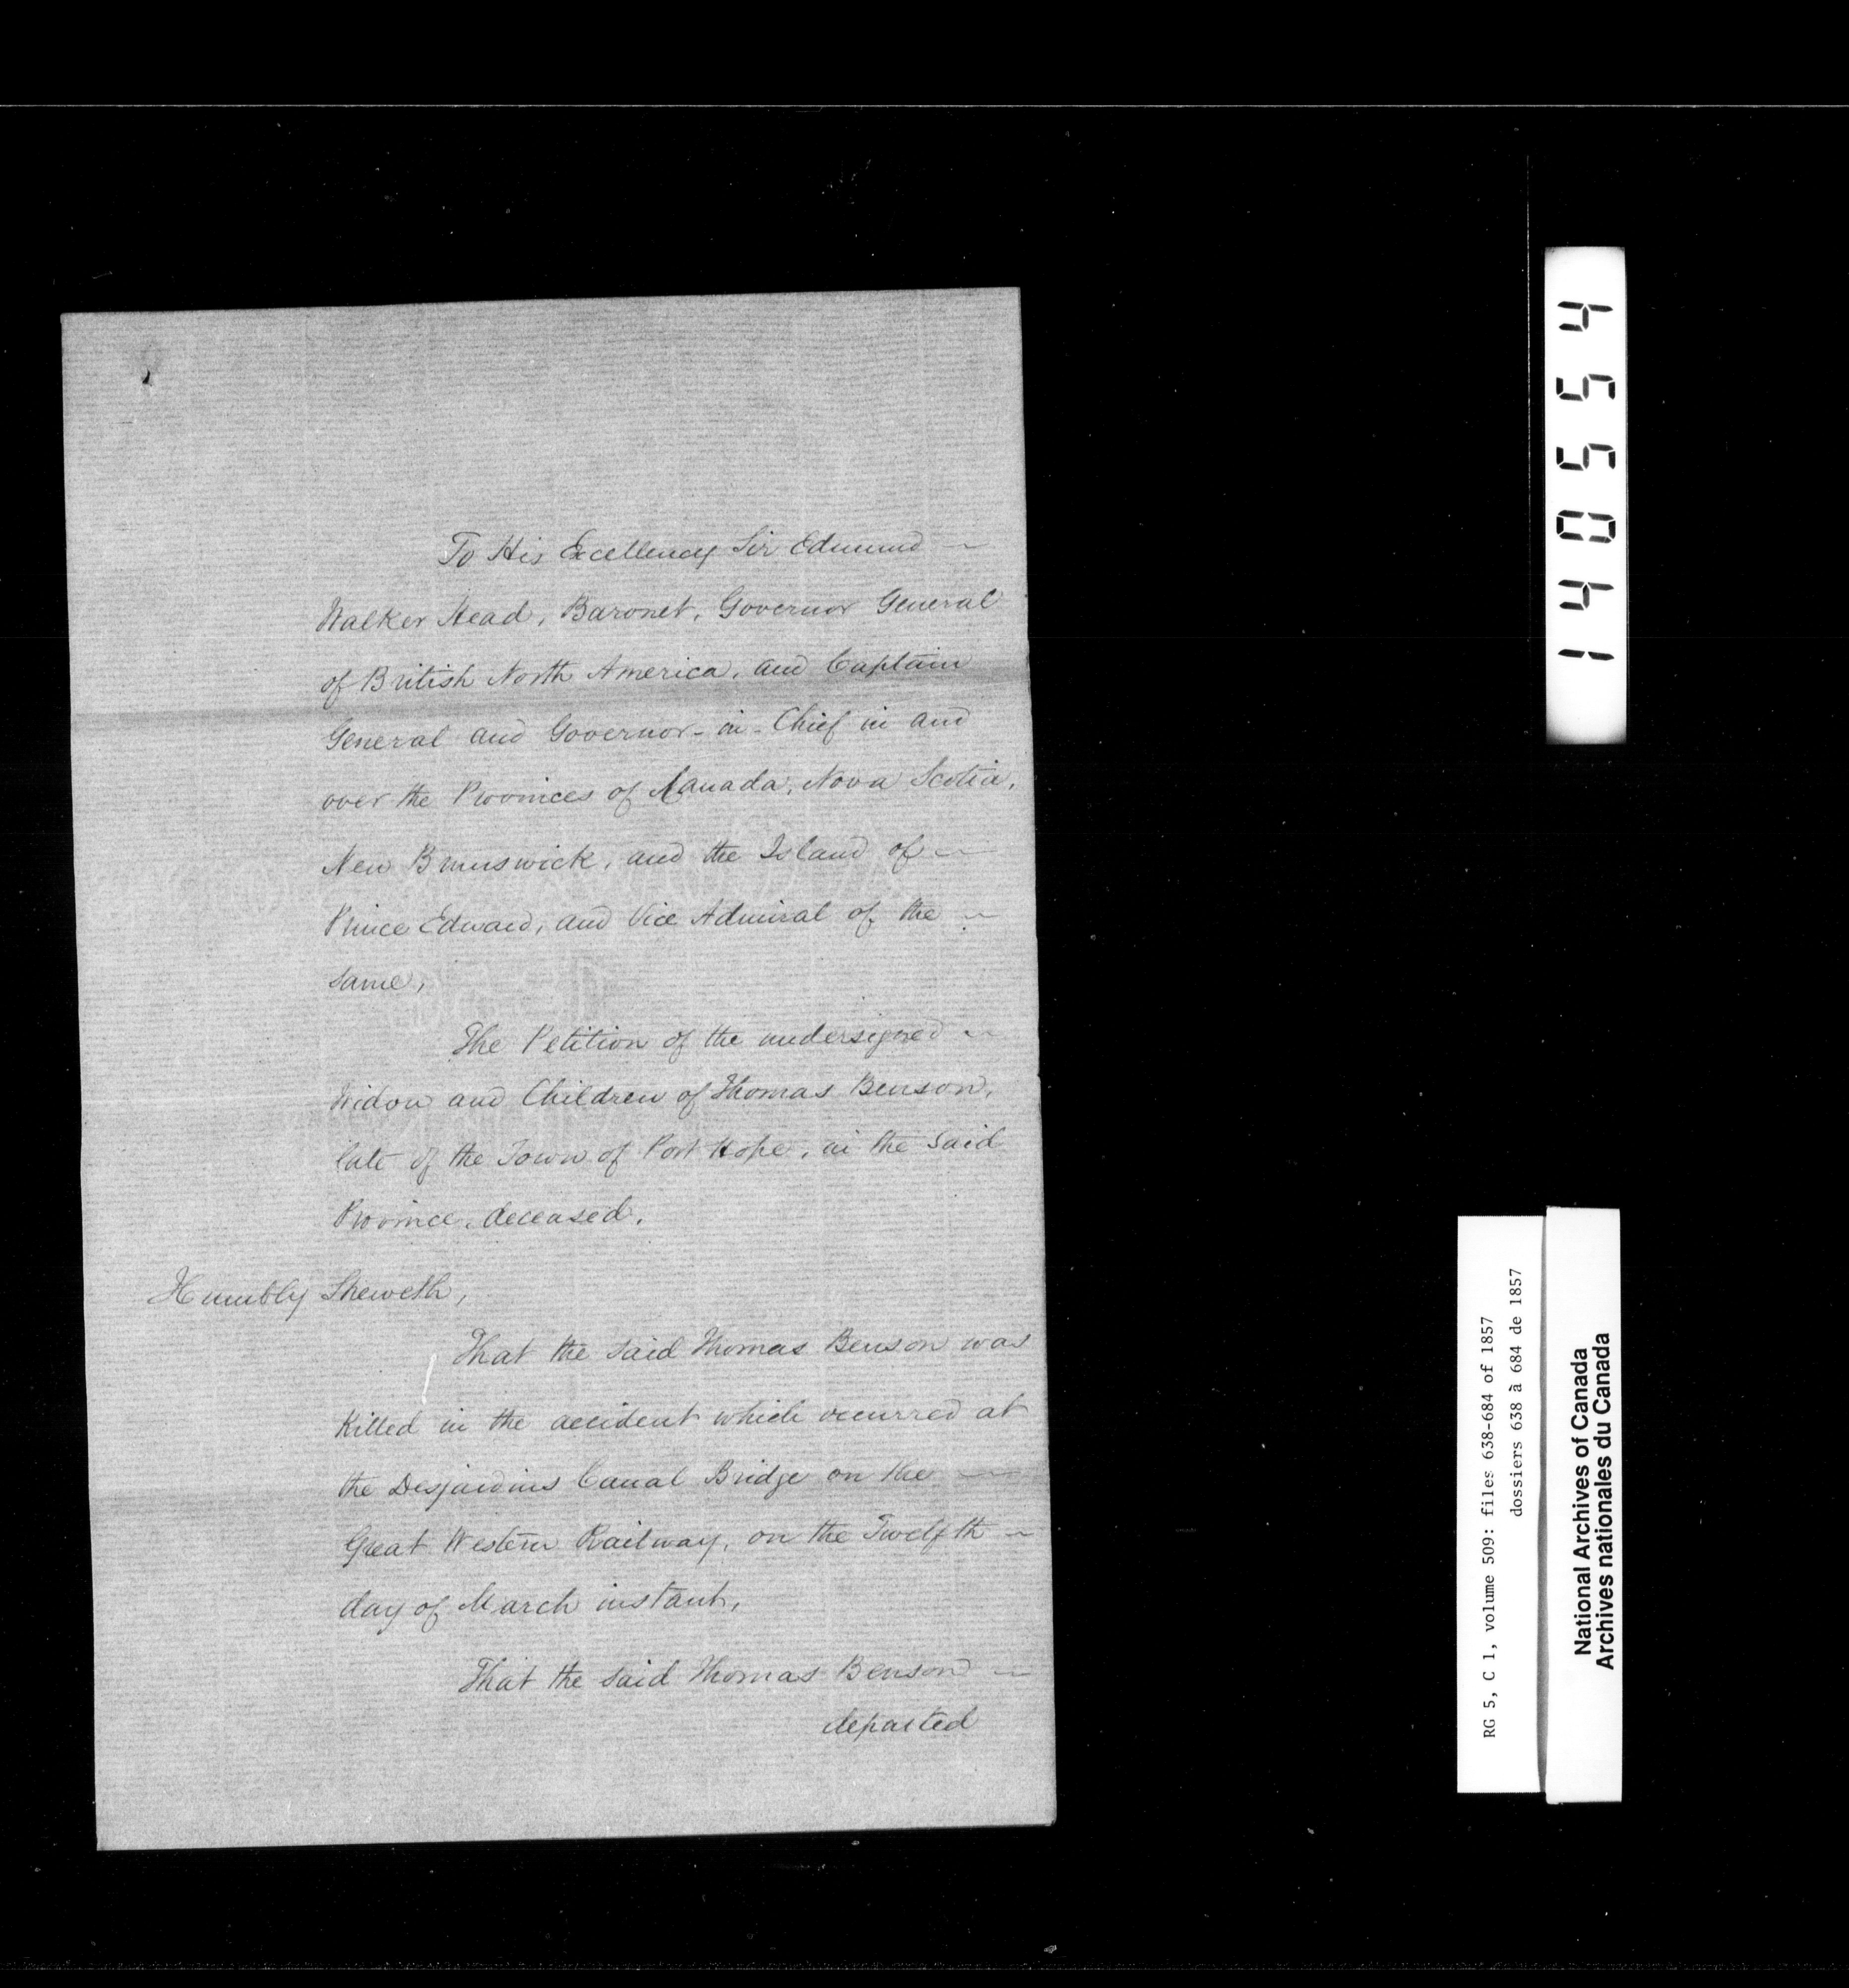 To His Excellency Sir Edmund
Walker Head, Baronet, Governor General
of British North America, and Captain
General and Governor-in-Chief in and
over the Provinces of Canada, Nova Scotia,
New Brunswick, and the Island of
Prince Edward, and Vice Admiral of the
same,
The Petition of the undersigned
Widow and Children of Thomas Benson,
late of the Town of Port Hope, in the said
Province, deceased.
Humbly Sheweth,
That the said Thomas Benson was
Killed in the accident which occurred at
the Desjardins Canal Bridge on the
Great Western Railway, on the Twelfth
day of March instant,
That the said Thomas Benson
departed
140554
RG 5, C 1, volume 509: files 638-684 of 1857
dossiers 638 à 684 de 1857
National Archives of Canada
Archives nationales du Canada